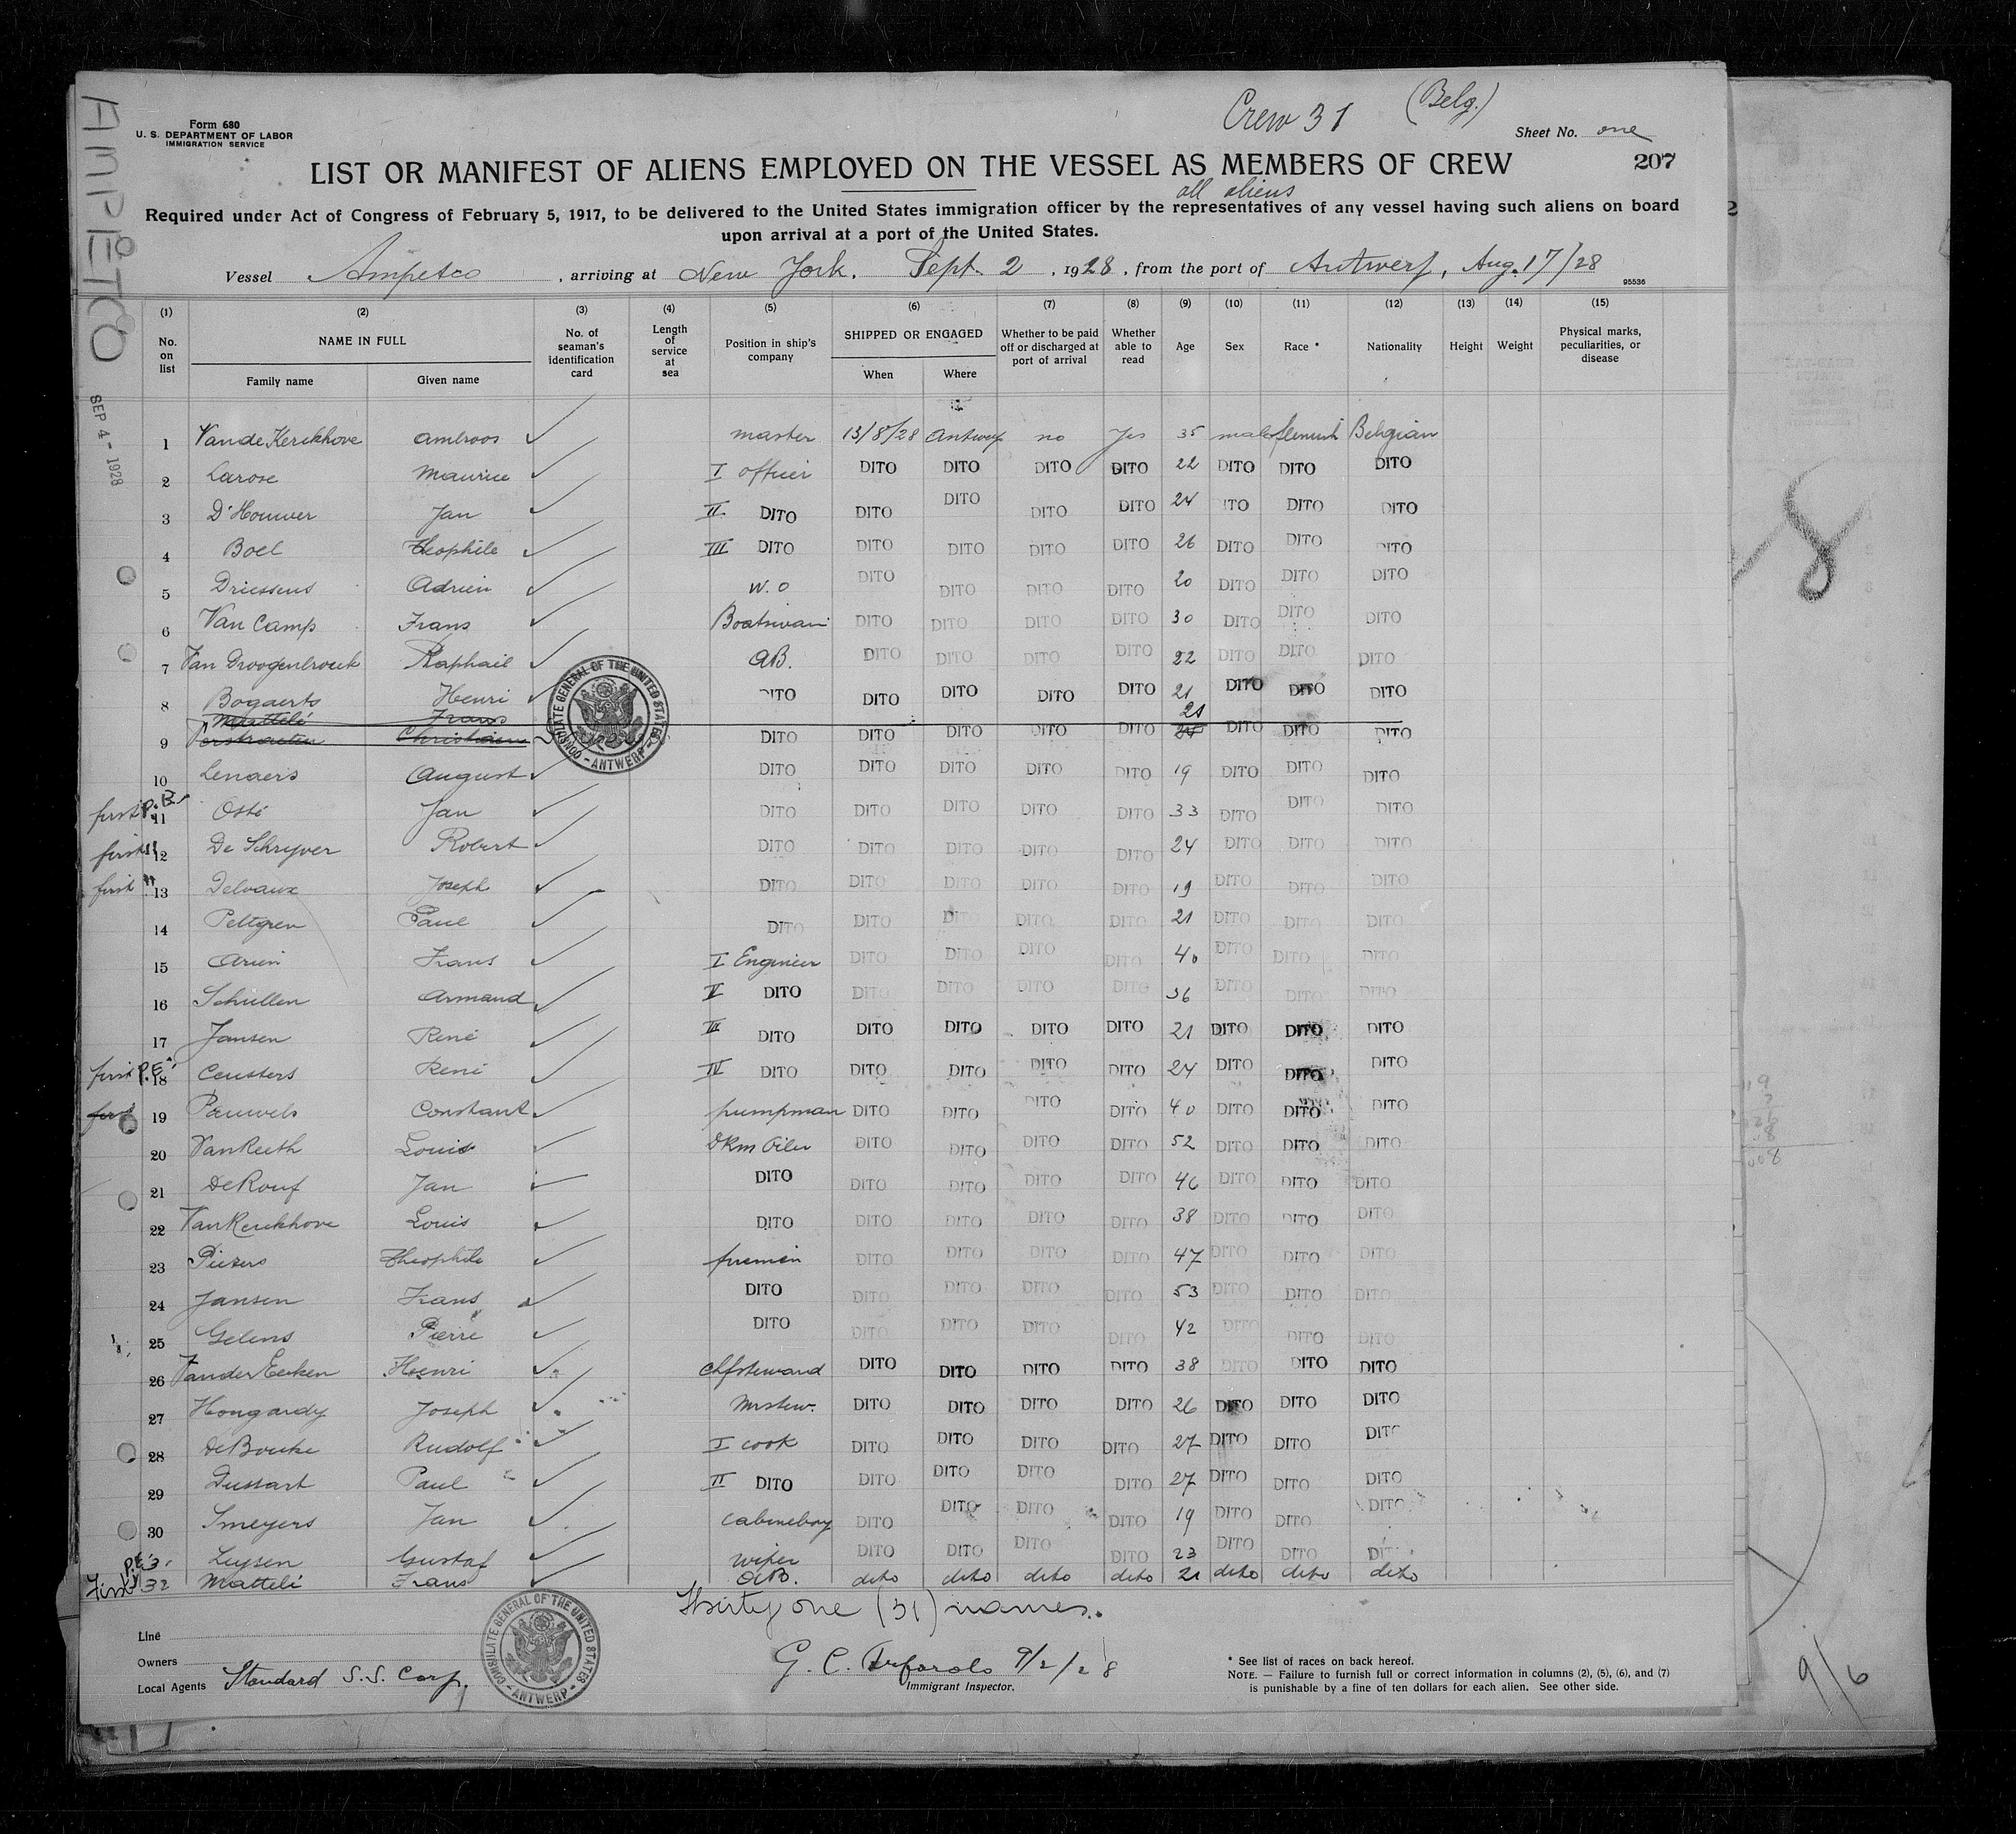 Crew 31 (Belg.)
Form 680
U. S. DEPARTMENT OF LABOR
IMMIGRATION SERVICE
Sheet No. one
AMPETCO
SEP 4 - 1928
LIST OR MANIFEST OF ALIENS EMPLOYED ON THE VESSEL AS MEMBERS OF CREW
207
all aliens
Required under Act of Congress of February 5, 1917, to be delivered to the United States immigration officer by the representatives of any vessel having such aliens on board
upon arrival at a port of the United States.
Vessel Ampetco , arriving at New York. Sept. 2 , 1928 , from the port of Antwerp, Aug. 17/28
95536
(1) (2) (3) (4) (5) (6) (7) (8) (9) (10) (11) (12) (13) (14) (15)
No. on list NAME IN FULL Family name Given name No. of seaman's identification card Length of service at sea Position in ship's company SHIPPED OR ENGAGED When Where Whether to be paid off or discharged at port of arrival Whether able to read Age Sex Race * Nationality Height Weight Physical marks, peculiarities, or disease
1 Van de Kerckhove Ambroos master 13/8/28 Antwerp no Yes 35 male flemish Belgian
2 Larose Maurice I officer DITO DITO DITO DITO 22 DITO DITO DITO
3 D'Houwer Jan II DITO DITO DITO DITO DITO 24 DITO DITO DITO
4 Boel Theophile III DITO DITO DITO DITO DITO 26 DITO DITO DITO
5 Driessens Adrien W. O DITO DITO DITO DITO 20 DITO DITO DITO
6 Van Camp Frans Boatswain DITO DITO DITO DITO 30 DITO DITO DITO
7 Van Droogenbrouck Raphaël AB. DITO DITO DITO DITO 22 DITO DITO DITO
8 Bogaerts Henri DITO DITO DITO DITO DITO 21 DITO DITO DITO
Mattelé Frans 21
9 Verstraeten Christiaen DITO DITO DITO DITO DITO DITO DITO DITO
10 Lenaers August DITO DITO DITO DITO DITO 19 DITO DITO DITO
first P.E. 11 Osté Jan DITO DITO DITO DITO DITO 33 DITO DITO DITO
first " 12 De Schryver Robert DITO DITO DITO DITO DITO 24 DITO DITO DITO
first " 13 Delvaux Joseph DITO DITO DITO DITO DITO 19 DITO DITO DITO
14 Peltgren Paul DITO DITO DITO DITO DITO 21 DITO DITO DITO
15 Arien Frans I Engineer DITO DITO DITO DITO 40 DITO DITO DITO
16 Schullen Armand II DITO DITO DITO DITO DITO 36 DITO DITO DITO
17 Jansen René III DITO DITO DITO DITO DITO 21 DITO DITO DITO
first P.E. 18 Ceusters René IV DITO DITO DITO DITO DITO 24 DITO DITO DITO
first 19 Pauwels Constant pumpman DITO DITO DITO DITO 40 DITO DITO DITO
20 Van Reeth Louis Dkm Oiler DITO DITO DITO DITO 52 DITO DITO DITO
21 De Kouf Jan DITO DITO DITO DITO DITO 46 DITO DITO DITO
22 Van Kerckhove Louis DITO DITO DITO DITO DITO 38 DITO DITO DITO
23 Piesers Theophile firemen DITO DITO DITO DITO 47 DITO DITO DITO
24 Jansen Frans DITO DITO DITO DITO DITO 53 DITO DITO DITO
25 Gelens Pierre DITO DITO DITO DITO DITO 42 DITO DITO DITO
26 Vander Eecken Henri Chfsteward DITO DITO DITO DITO 38 DITO DITO DITO
27 Hongardy Joseph Msstew. DITO DITO DITO DITO 26 DITO DITO DITO
28 De Boucke Rudolf I cook DITO DITO DITO DITO 27 DITO DITO DITO
29 Dussart Paul II DITO DITO DITO DITO DITO 27 DITO DITO DITO
30 Smeyers Jan Cabineboy DITO DITO DITO DITO 19 DITO DITO DITO
P.E. 31 Luysen Gustaf wiper DITO DITO DITO DITO 23 DITO DITO DITO
First 32 Mattelé Frans AB. dito dito dito dito 21 dito dito dito
CONSULATE GENERAL OF THE UNITED STATES - ANTWERP -
Thirty one (31) names.
Line
Owners
Local Agents Standard S.S. Corp.
CONSULATE GENERAL OF THE UNITED STATES - ANTWERP -
G. C. 9/2/28
Immigrant Inspector.
* See list of races on back hereof.
NOTE. — Failure to furnish full or correct information in columns (2), (5), (6), and (7)
is punishable by a fine of ten dollars for each alien. See other side.
8
9/6